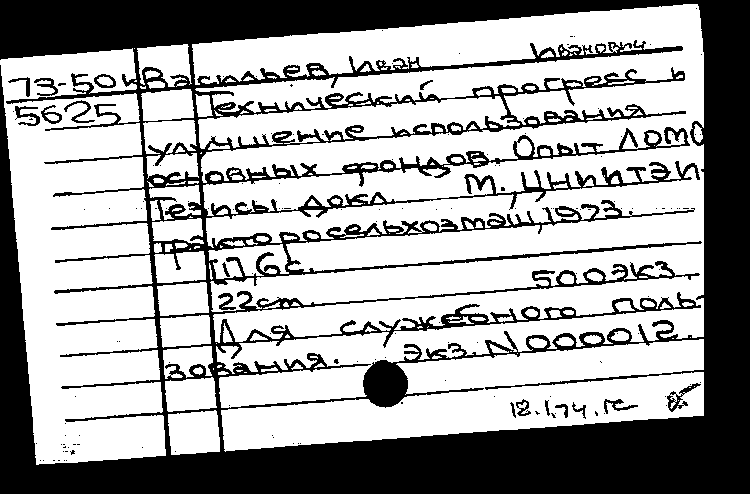 73-50к Васильев, Иван Иванович
5625 Технический прогресс и
улучшение использования
основных фондов. Опыт ЛОМО
Тезисы докл. М., ЦНИИТЭИ-
тракторосельхозмаш, 1973.
[1], 6 с.
22 cm. 500 экз.
Для служебного поль-
зования. Экз. N 000012.
12.1.74.